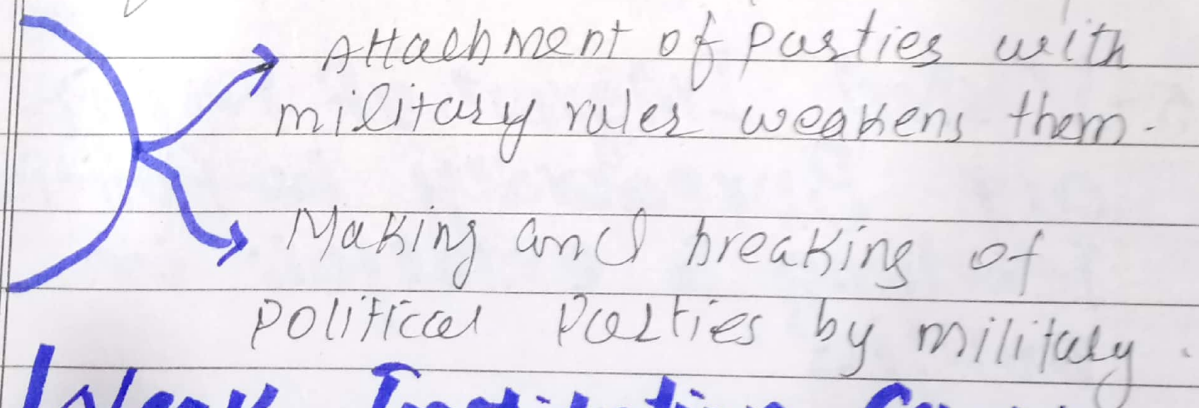 Attachment of parties with
military rules weakens them.
Making and breaking of
political parties by military.
Weak